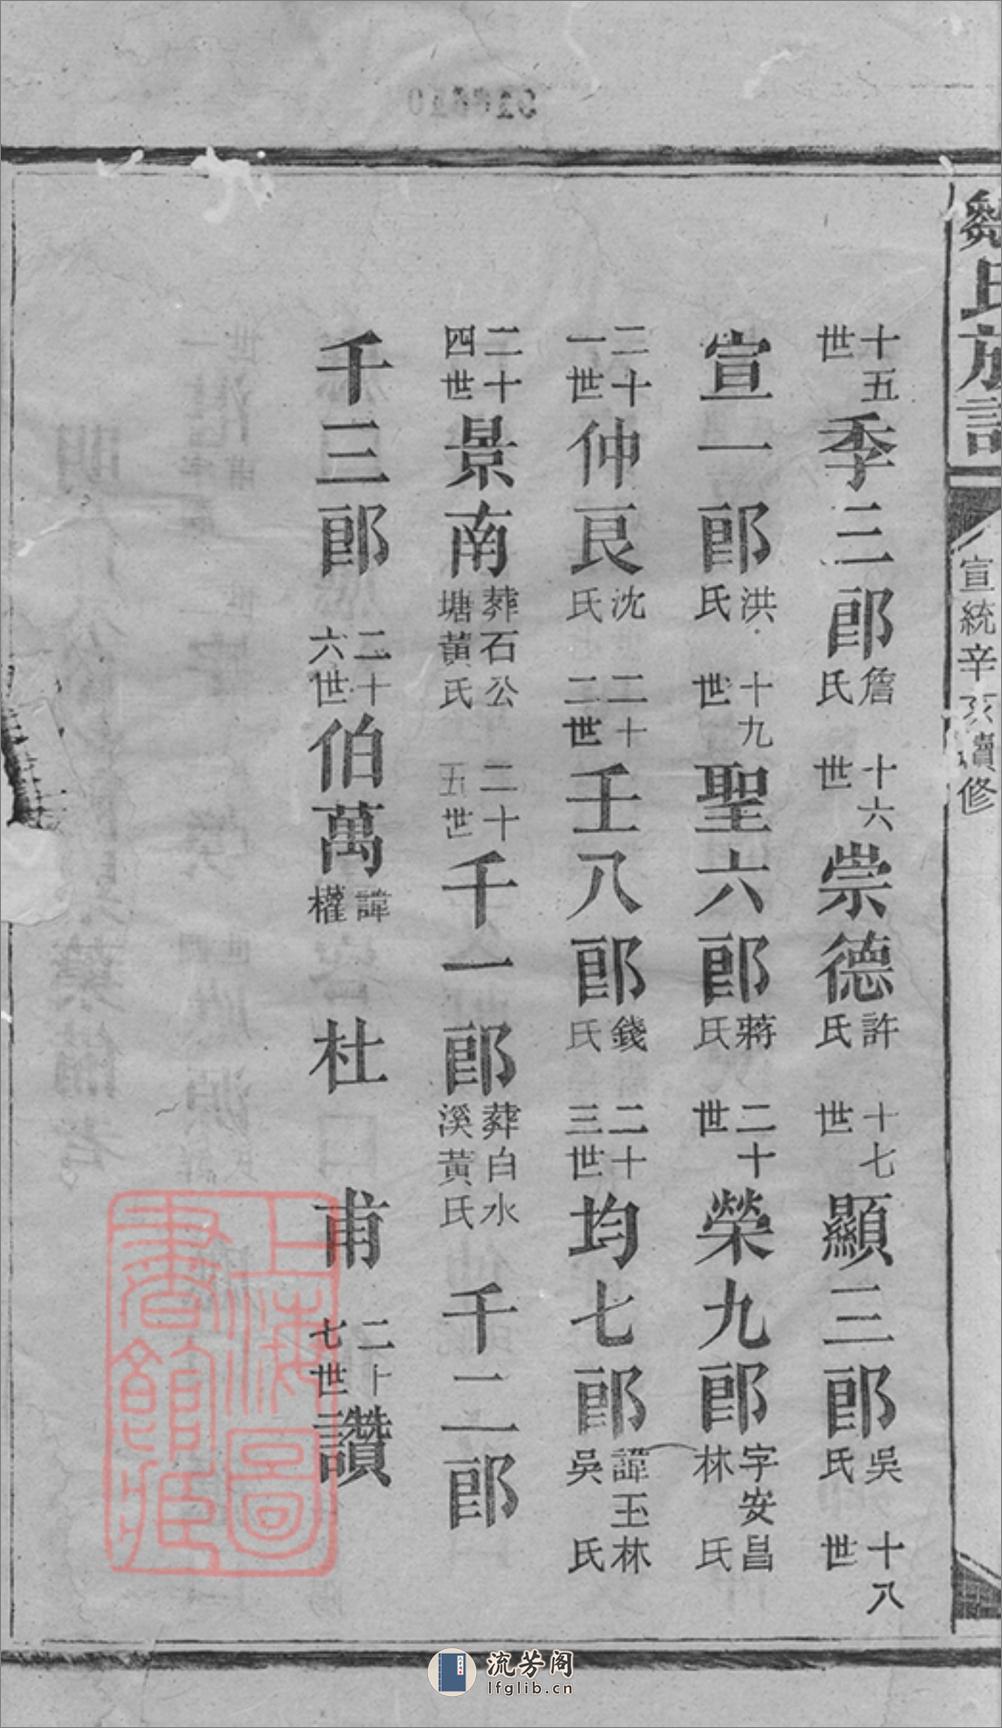 鄒氏族譜
宣統辛亥續修
十五世季三郎詹氏 十六世崇德許氏 十七世顯三郎吳氏 十八世
宣一郎洪氏 十九世聖六郎蔣氏 二十世榮九郎字安昌林氏
二十一世仲良沈氏 二十二世壬八郎錢氏 二十三世均七郎諱玉林吳氏
二十四世景南葬石公塘黃氏 二十五世千一郎葬白水溪黃氏 千二郎
千三郎 二十六世伯萬諱權 杜 甫 二十七世讚
上海圖書館藏
流芳阁
lfglib.cn